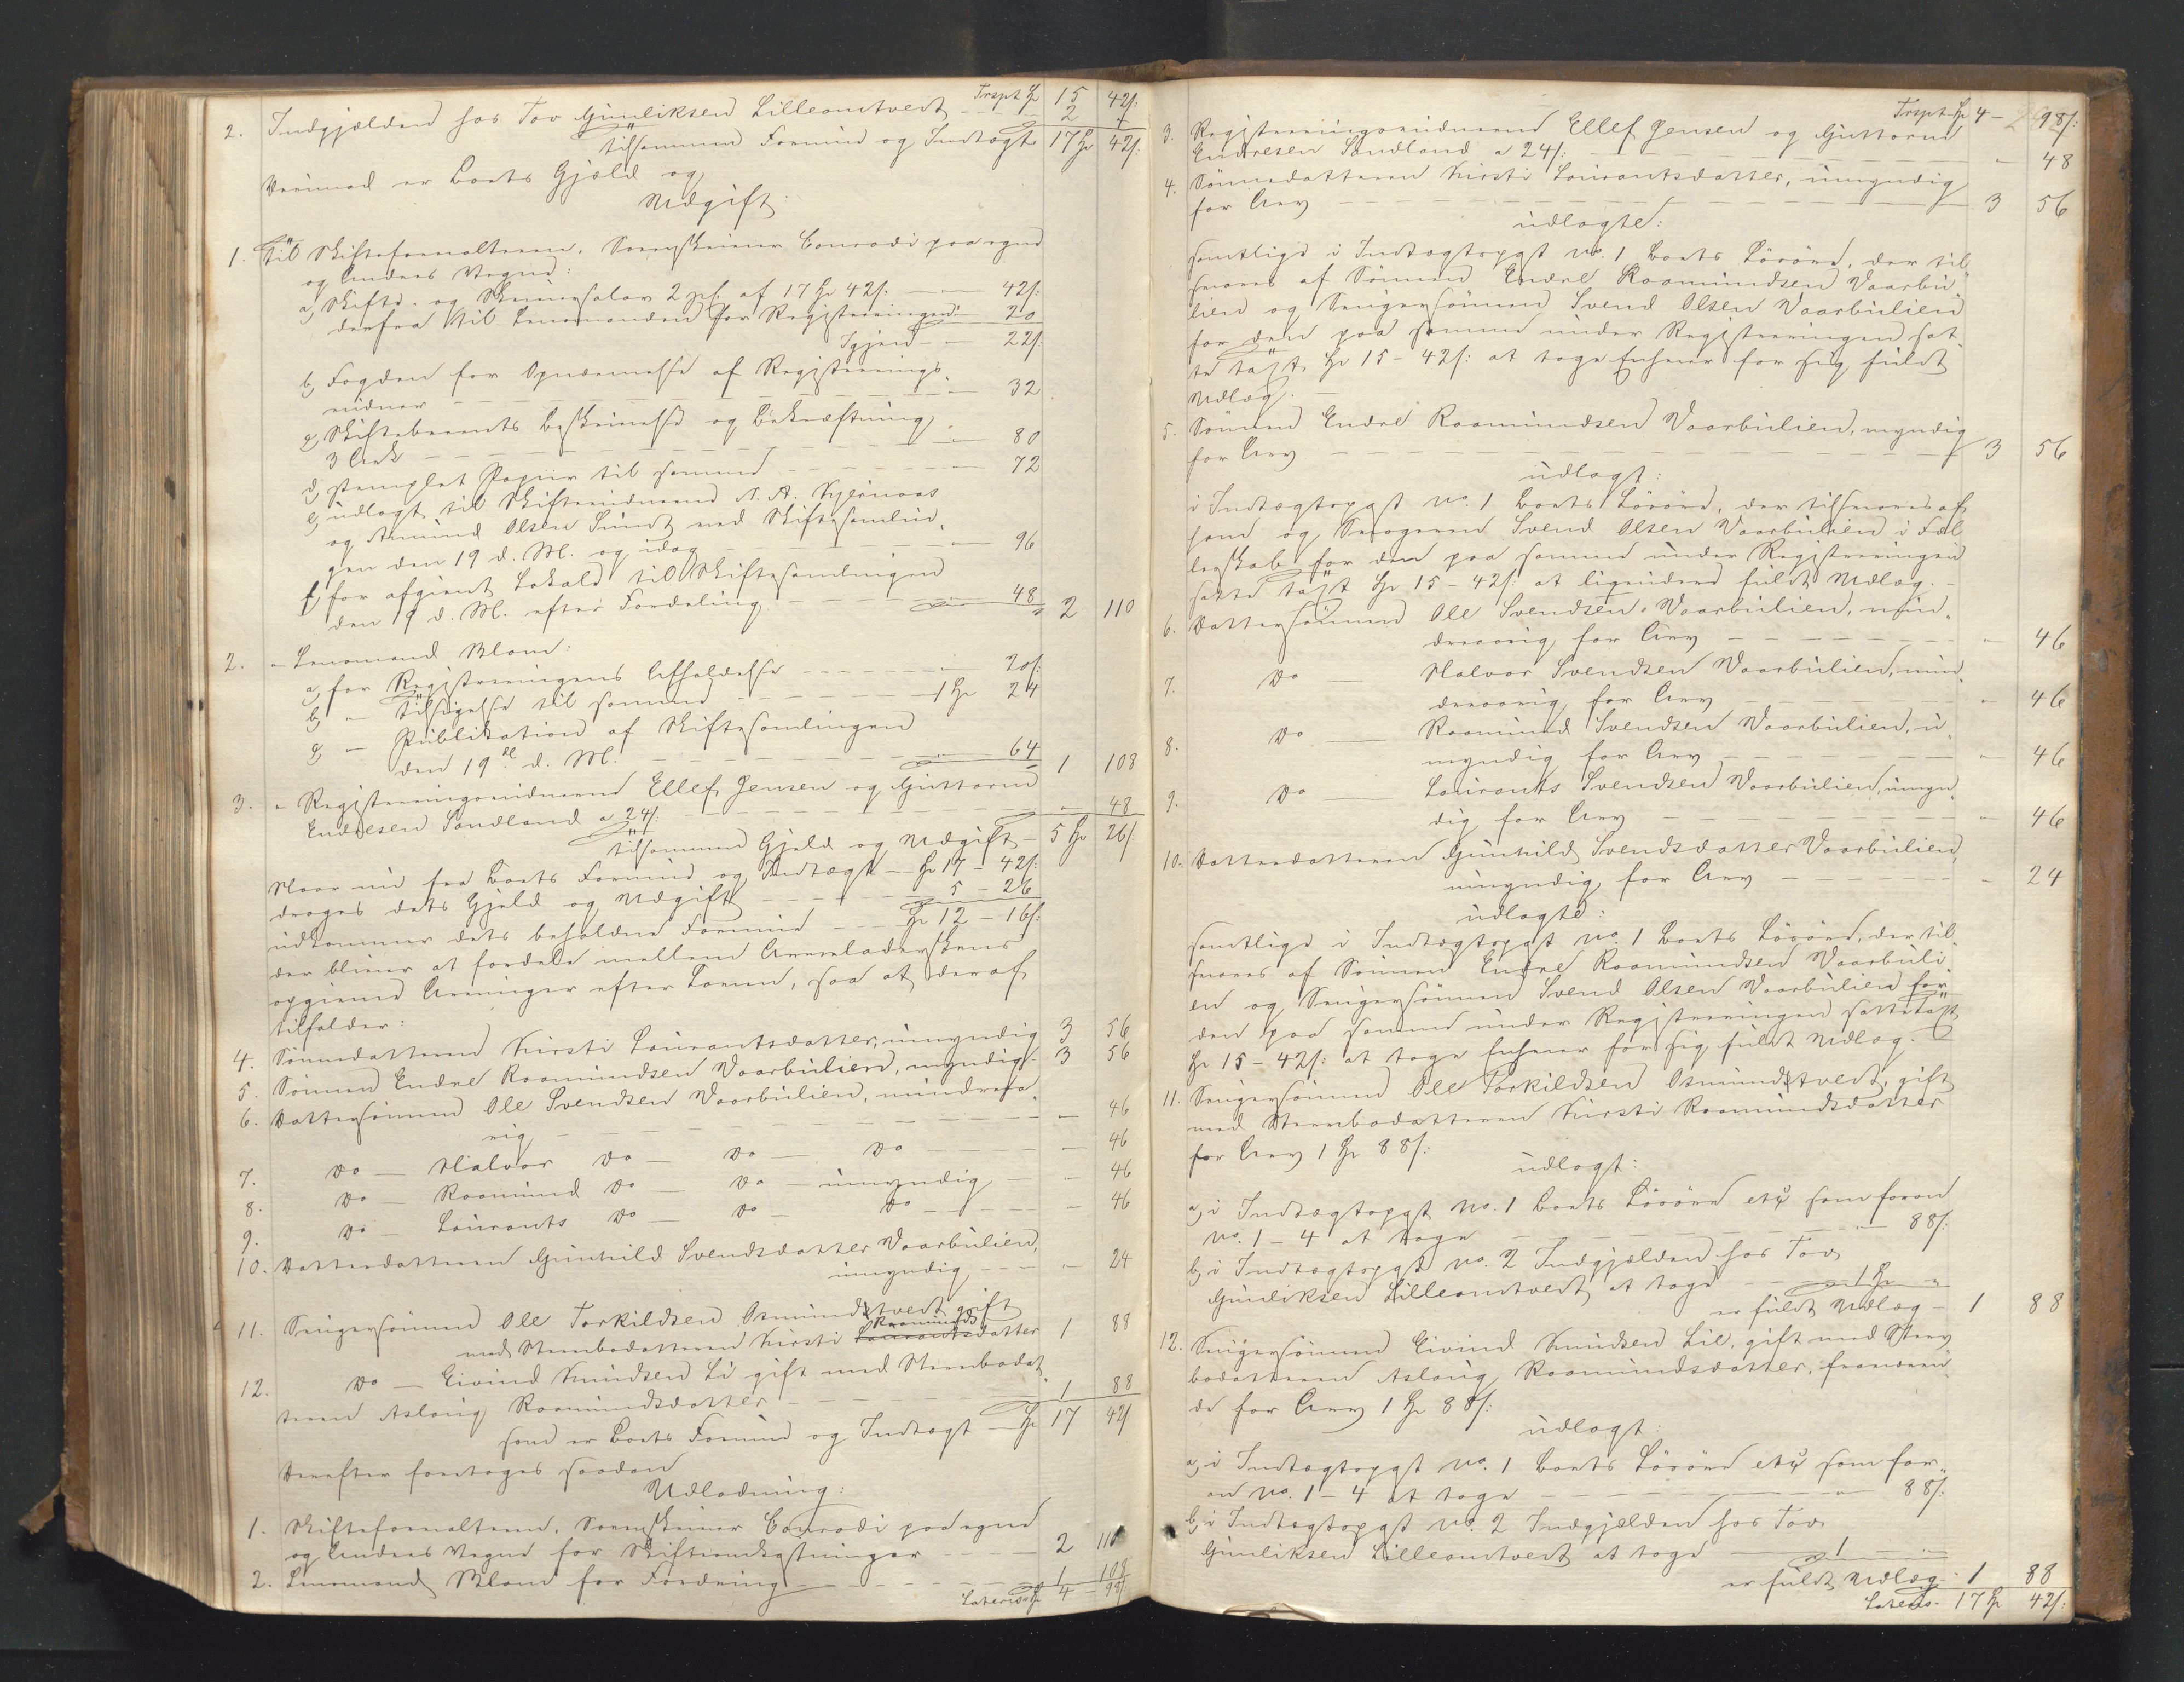 Trspt Hr 15 42/:
2. Indgjælden hos Tov Gunliksen Lilleomtvedt - - 2 "
tilsammen Formue og Indtægt 17 Hr 42/:
Herimod er Boets Gjæld og
Udgift:
1. Til Skifteforvalteren, Sorenskriver Conradi paa egne
og Andres Vegne:
a, Skifte- og Skriversalær 2 pCt. af 17 Hr 42/: — 42/:
derfra til Lensmanden for Registreringen 20
Igjen - " 22/:
b, Fogden for Opnævnelse af Registrerings-
vidner - - - " 32
c, Skiftebrevets Beskrivelse og Bekræftning
3 Ark - - - " 80
d, stemplet Papir til samme - - - " 72
e, udlagt til Skiftevidnerne
og Amund Olsen Sundt ved Skiftesamlin-
gen den 19 d. M. og idag - - - " 96
f, for afgivet Lokale til Skiftesamlingen
den 19 d. M. efter Fordeling - - - " 48 2 110
2. " Lensmand Blom:
a, for Registreringens Afholdelse - - - " 20/:
b, " Tilsigelse til samme - - - 1 Hr 24
c, " Publikation af Skiftesamlingen
den 19de d. M. - - - " 64 1 108
3. " Registreringsvidnerne Ellef Jensen og Guttorm
Endresen Sandland a 24/: - - - " 48
tilsammen Gjæld og Udgift - 5 Hr 26/:
Naar nu fra Boets Formue og Indtægt - Hr 17 - 42/:
drages dets Gjæld og Udgift - - - 5 - 26
udkommer dets beholdne Formue - - - Hr 12 - 16/:
der bliver at fordele mellem Arveladerskens
opgivne Arvinger efter Loven, saa at deraf
tilfalder:
4. Sønnedatteren Kirsti Laurantsdatter, umyndig 3 56
5. Sønnen Endre Raamundsen Vaarbulien, myndig - 3 56
6. Dattersønnen Ole Svendsen Vaarbulien, mindreaa-
rig - - - " 46
7. Do — Halvor Do — Do — Do - - - " 46
8. Do — Raamund Do — Do — umyndig - " 46
9. Do — Laurants Do — Do — Do - - - " 46
10. Datterdatteren Gunhild Svendsdatter Vaarbulien,
umyndig - - - " 24
11. Svigersønnen Ole Torkildsen Osmundstvedt gift
med Stervbodatteren Kirsti Laurantsdatter Raamunds 1 88
12. Do — Eivind Knudsen Li gift med Stervbodat-
teren Aslaug Raamundsdatter - - - 1 88
som er Boets Formue og Indtægt - Hr 17 42/
Derefter foretages saadan
Udlodning:
1. Skifteforvalteren, Sorenskriver Conradi paa egne
og Andres Vegne for Skifteomkostninger - - - 2 110
2. Lensmand Blom for Fordring - - - 1 108
Lateris Hr 4 - 98/:
Trspt Hr 4 - 98/:
3. Registreringsvidnerne Ellef Jensen og Guttorm
Endresen Sandland a 24/: - - - " 48
4. Sønnedatteren Kirsti Laurantsdatter, umyndig
for Arv - - - 3 56
udlagte:
samtlige i Indtægtspost No. 1 Boets Løsøre, der til-
svares af Sønnen Endre Raamundsen Vaarbu-
lien og Svigersønnen Svend Olsen Vaarbulien
for den paa samme under Registreringen sat-
te Taxt Hr 15 - 42/: at tage Enhver for sig fuldt
Udlæg.
5. Sønnen Endre Raamundsen Vaarbulien, myndig
for Arv - - - 3 56
udlagt:
i Indtægtspost No. 1 Boets Løsøre, der tilsvares af
ham og Svogeren Svend Olsen Vaarbulien i Fæl-
lesskab for den paa samme under Registreringen
satte Taxt Hr 15 - 42/: at ligeledes fuldt Udlæg. -
6. Dattersønnen Ole Svendsen Vaarbulien, min-
dreaarig for Arv - - - " 46
7. Do — Halvor Svendsen Vaarbulien, min-
dreaarig for Arv - - - " 46
8. Do — Raamund Svendsen Vaarbulien, u-
myndig for Arv - - - " 46
9. Do — Laurants Svendsen Vaarbulien, umyn-
dig for Arv - - - " 46
10. Datterdatteren Gunhild Svendsdatter Vaarbulien,
umyndig for Arv - - - " 24
udlagte:
samtlige i Indtægtspost No. 1 Boets Løsøre, der til-
svares af Sønnen Endre Raamundsen Vaarbuli-
en og Svigersønnen Svend Olsen Vaarbulien for
den paa samme under Registreringen satte Taxt
Hr 15 - 42/: at tage Enhver for sig fuldt Udlæg. -
11. Svigersønnen Ole Torkildsen Osmundstvedt, gift
med Stervbodatteren Kirsti Raamundsdatter
for Arv 1 Hr 88/:
udlagt:
a, i Indtægtspost No. 1 Boets Løsøre etc som foran
No. 1 - 4 at tage - - - " 88/:
b, i Indtægtspost No. 2 Indgjælden hos Tov
Gunliksen Lilleomtvedt at tage - - 1 Hr "
er fuldt Udlæg - 1 88
12. Svigersønnen Eivind Knudsen Lie, gift med Sterv-
bodatteren Aslaug Raamundsdatter, fraværen-
de for Arv 1 Hr 88/:
udlagt:
a, i Indtægtspost No. 1 Boets Løsøre etc som for-
an No. 1 - 4 at tage - - - " 88/:
b, i Indtægtspost No. 2 Indgjælden hos Tov
Gunliksen Lilleomtvedt at tage - - 1 "
er fuldt Udlæg - 1 88
Lateris - 17 Hr 42/: